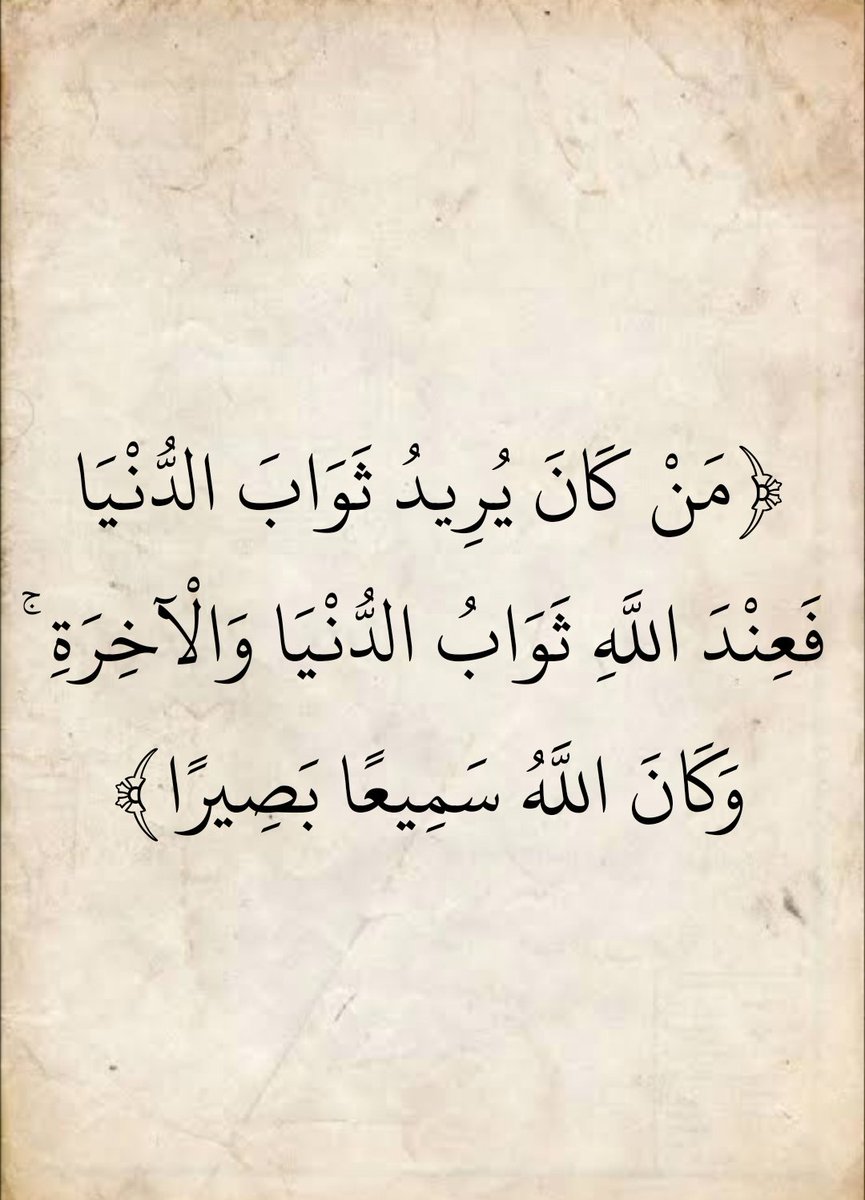 ﴿مَنْ كَانَ يُرِيدُ ثَوَابَ الدُّنْيَا
فَعِنْدَ اللَّهِ ثَوَابُ الدُّنْيَا وَالْآخِرَةِ ۚ
وَكَانَ اللَّهُ سَمِيعًا بَصِيرًا﴾